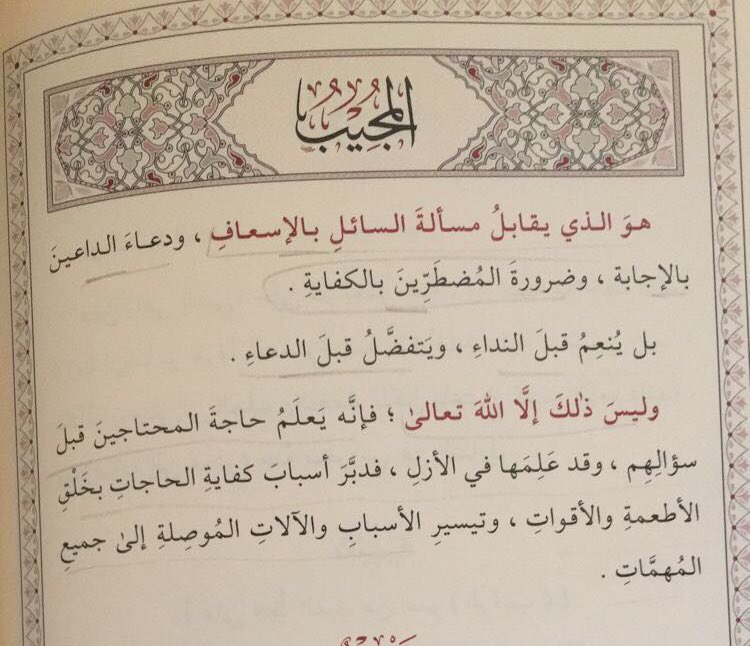 المُجِيبُ
هوَ الذي يقابلُ مسألةَ السائلِ بالإسعافِ ، ودعاءَ الداعينَ
بالإجابة ، وضرورةَ المُضطَرِّينَ بالكفايةِ .
بل يُنعِمُ قبلَ النداءِ ، ويَتفضَّلُ قبلَ الدعاءِ .
وليسَ ذٰلكَ إلَّا اللهَ تعالىٰ ؛ فإنَّه يَعلَمُ حاجةَ المحتاجينَ قبلَ
سؤالِهِم ، وقد عَلِمَها في الأزلِ ، فدبَّرَ أسبابَ كفايةِ الحاجاتِ بخَلْقِ
الأطعمةِ والأقواتِ ، وتيسيرِ الأسبابِ والآلاتِ المُوصِلةِ إلىٰ جميعِ
المُهمَّاتِ .